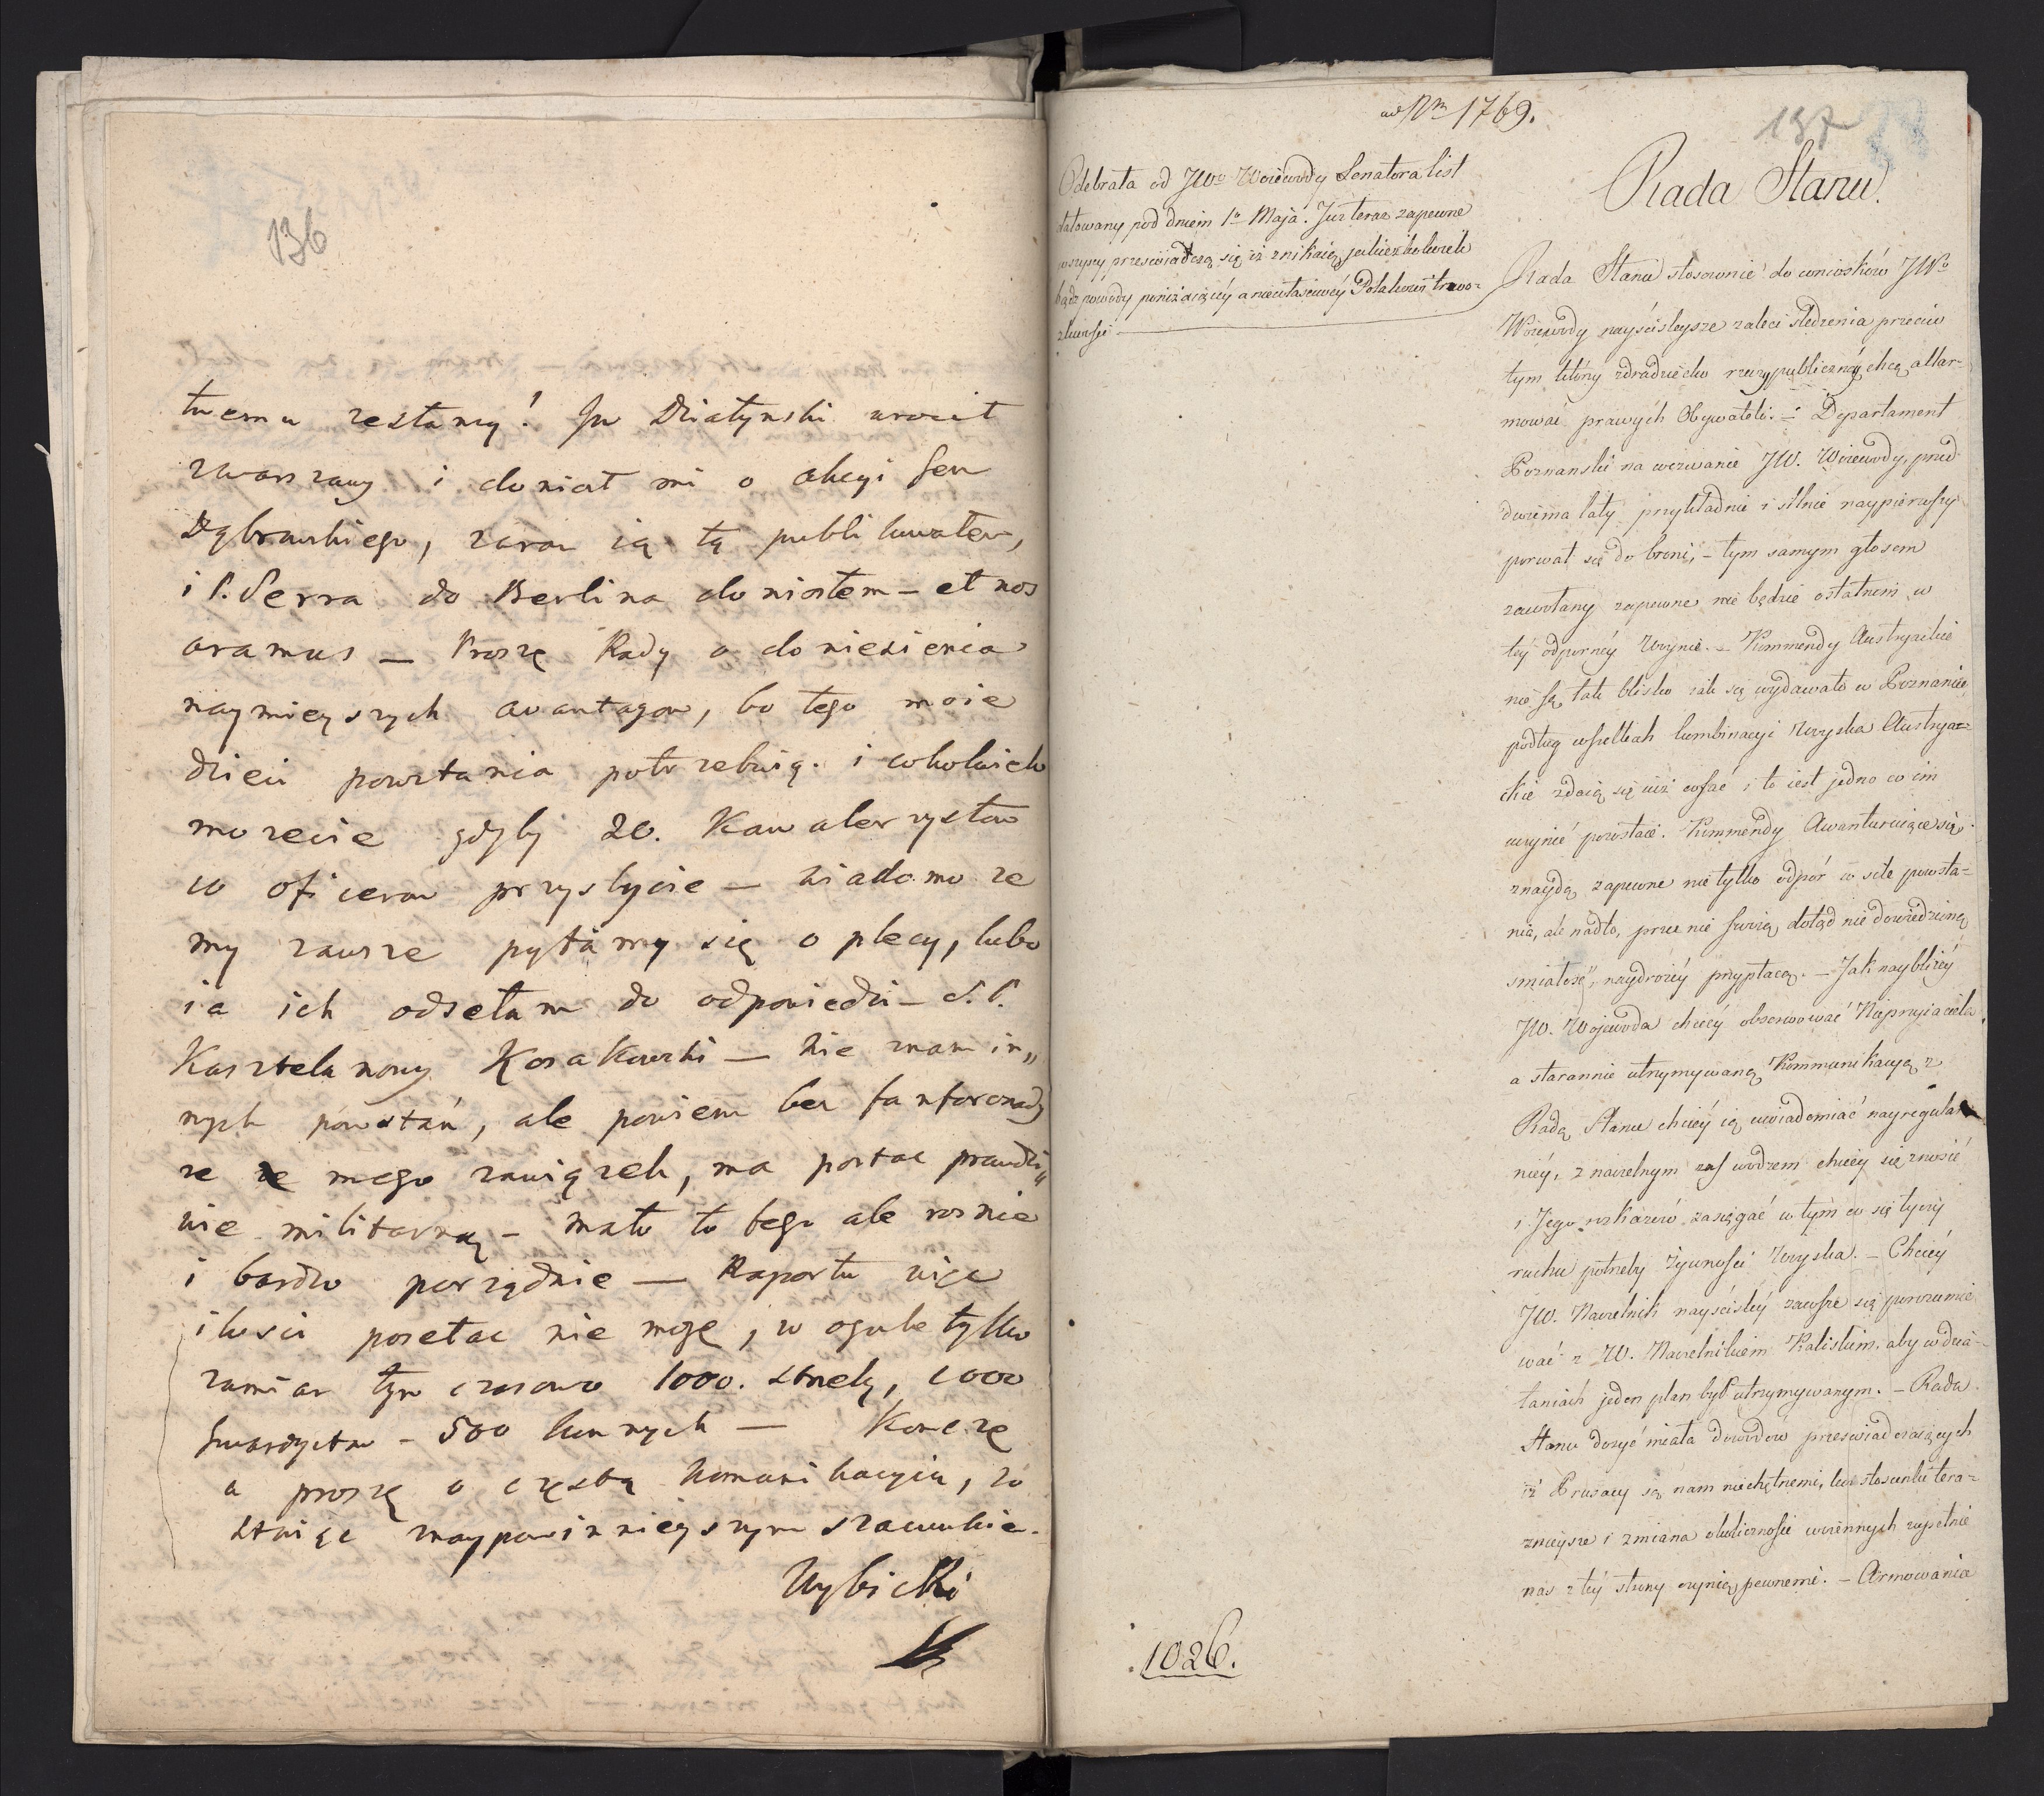 136
tnemu zestany! Jw Działynski wrócił
zwarszawy i doniosł mi o akcyi Gen
Dąbrowskiego, zaraz ią tę publikowałem,
i P. Serra do Berlina doniosłem – et nos
aramus — Proszę Rady o doniesienia
naymnieyszych avantagow, bo tego moie
dzieci powstania potrzebuią. i cokolwiek
mozecie gdyby 20. Kawalerzystow
co oficerow przyslycie — wiadomo ze
my zawsze pytamy się o plecy, lubo
ia ich odsełam do odpowiedzi – S. P.
Kasztelanowy Kosakowski — Nie znam in„
nych powstań, ale powiem bez fanforonady
ze mego związek, ma postac prawdzi„
wie militarną – mało to tego ale rosnie
i bardzo porządnie — Raportu więc
ilosci posełac nie mogę, w ogule tylko
zamiar tym czasowo 1000. strzelcy, 1000
Gwardystow – 500 konnych — Koncze
a proszę o częstą komunikacyią, zo
staięc naypowinnieyszym szacunkie.
Wybicki
ad Nm 1769.
137
Odebrała od JWo Woiewody Senatora list
datowany pod dniem 1o Maja. Juz teraz zapewne
wszyscy przeswiadczą się iż znikaią jakieżkolwiek
bądz powody poniżaiącéy a niewłasciwéy Polakowi trwo=
zliwosci —
1026.
Rada Stanu.
Rada Stanu stosownie do wniosków JWo
Woiewody nayscisleysze zaleci sledzenia przeciw
tym którzy zdradziecko rzeczypublicznéy chcą allar=
mować prawych Obywateli. – Departament
Poznanski na wezwanie JW. Woiewody, przed
dwiema laty przykładnie i silnie naypierwszy
porwał się do broni, – tym samym głosem
zawołany zapewne nie będzie ostatnim w
téy odporney Woynie. – Kommendy Austryackie
nie są tak blisko iak się wydawało w Poznaniu,
podług wszelkich kombinacyi Woyska Austrya=
ckie zdaią się iuż cofać, to iest jedno co im
czynić pozostaie. Kommendy Awanturuiące się
znaydą zapewne nie tylko odpór w sile powsta=
nia, ale nadto, przeenie swoią dotąd nie dowiedzioną
smiałosć, naydrożéy przypłacą. – Jak nayblizéy
JW. Wojewoda chcéy obserwować Nieprzyiaciela
a starannie utrzymywaną Kommunikacyą z
Radą Stanu chciéy ią uwiadomiać nayregular
niéy, z naczelnym zas wodzem chciéy się znosić
i Jego rozkazów zasięgać w tym co się tyczy
ruchu potrzeby żywnosci Woyska. – Chciéy
JW. Naczelnik nayscisléy zawsze się porozumie
wać z W. Naczelnikiem Kaliskim, aby w dzia-
łaniach jeden plan był utrzymywanym. – Rada
Stanu dosyć miała dowodów przeswiadczaiących
iż Prusacy są nam niechętnemi, lecz stosunki tera=
znieysze i zmiana okolicznosci woiennych zupełnie
nas z téy strony czynią pewnemi. – Armowania